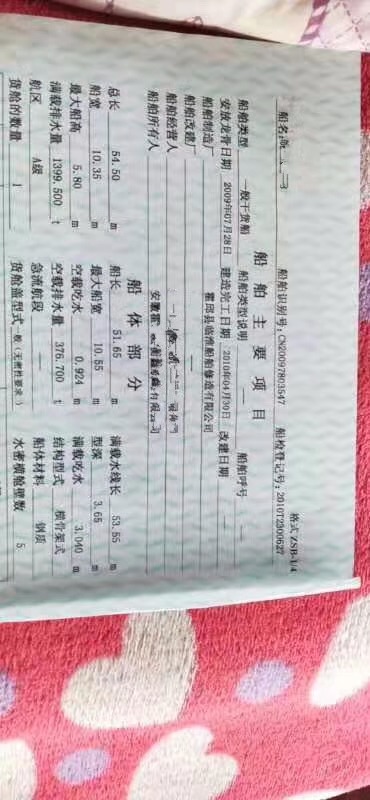 格式 ZSB-1/4
船名: 船舶识别号: CN20097803547 船检登记号: 2010T2300627
船舶主要项目
船舶类型 一般干货船 船舶类型说明 — 船舶呼号 —
安放龙骨日期 2009年07月28日 建造完工日期 2010年04月30日 改建日期 —
船舶制造厂 霍邱县临淮船舶修造有限公司
船舶改建厂 —
船舶经营人
船舶所有人 安徽 有限公司
船体部分
总长 54.50 m 船长 51.65 m 满载水线长 53.55 m
船宽 10.35 m 最大船宽 10.85 m 型深 3.65 m
最大船高 5.80 m 空载吃水 0.924 m 满载吃水 3.040 m
满载排水量 1399.500 t 空载排水量 376.700 t 结构型式 横骨架式
航区 A级 急流航段 — 船体材料 钢质
货舱的数量 1 货舱盖型式 一般(无密性要求) 水密横舱壁数 5